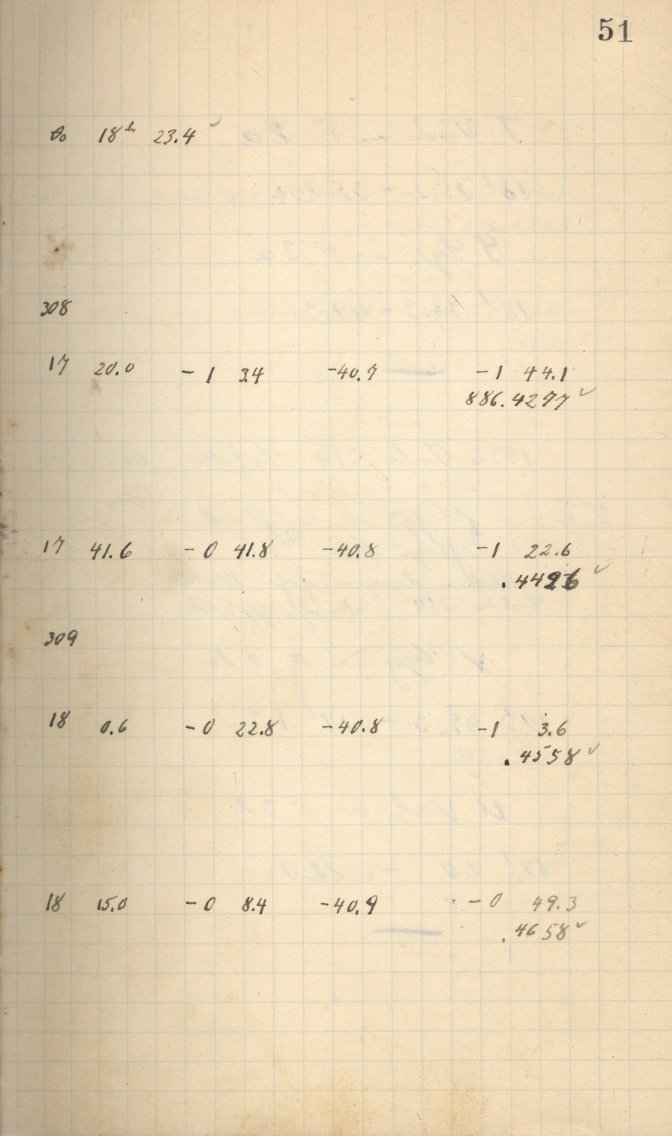 51
θ₀ 18ʰ 23.4 ✓
308
17 20.0 - 1 3.4 -40.7 - 1 44.1
886.4277 ✓
17 41.6 - 0 41.8 -40.8 -1 22.6
.4426 ✓
309
18 0.6 - 0 22.8 -40.8 -1 3.6
.4558 ✓
18 15.0 - 0 8.4 -40.9 - 0 49.3
.4658 ✓